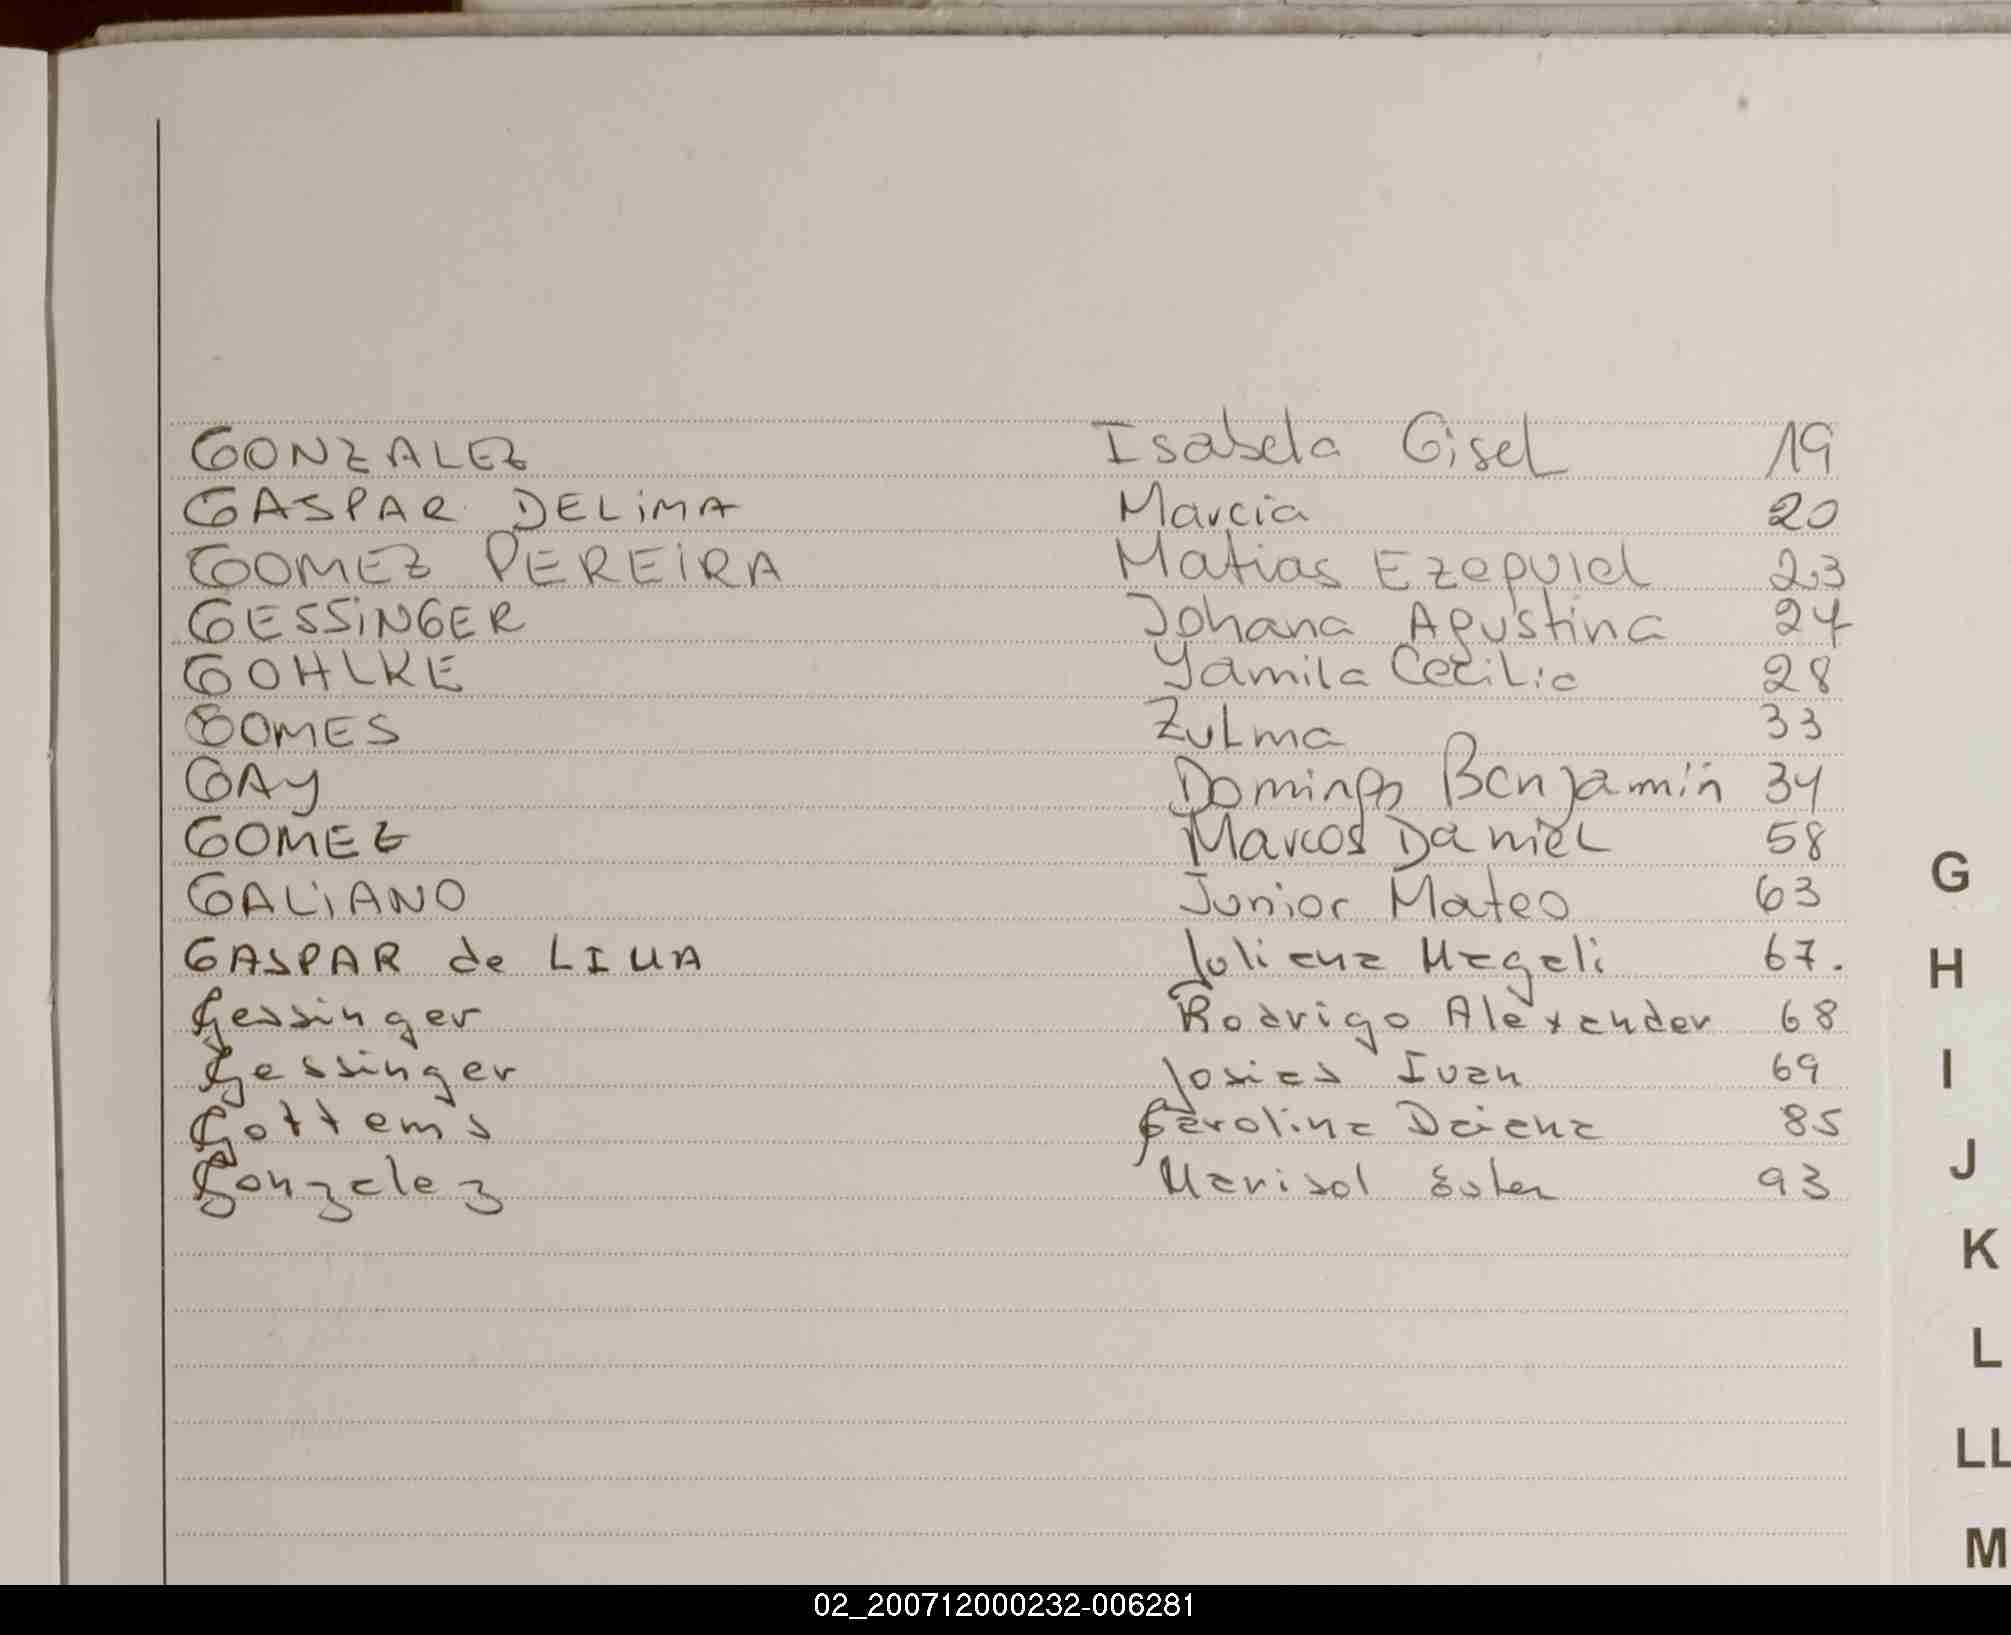 GONZALEZ Isabela Gisel 19
GASPAR DELIMA Marcia 20
GOMEZ PEREIRA Matias Ezequiel 23
GESSINGER Johana Agustina 24
GOHLKE Yamila Cecilia 28
GOMES Zulma 33
GAY Domingo Benjamin 34
GOMEZ Marcos Daniel 58
GALIANO Junior Mateo 63
GASPAR de LIMA Juliana Magali 67.
Gessinger Rodrigo Alexander 68
Gessinger Josias Ivan 69
Gottems Carolina Daiana 85
Gonzalez Marisol Ester 93
G
H
I
J
K
L
LL
M
02_200712000232-006281